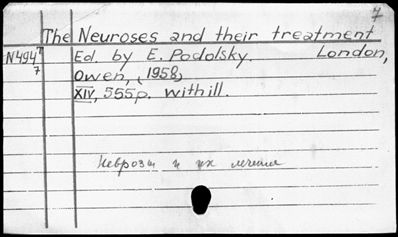 7
The Neuroses and their treatment
N494 T Ed. by E. Podolsky. London,
7 Owen, (1958)
XIV, 555p. with ill.
Неврозы и их лечение